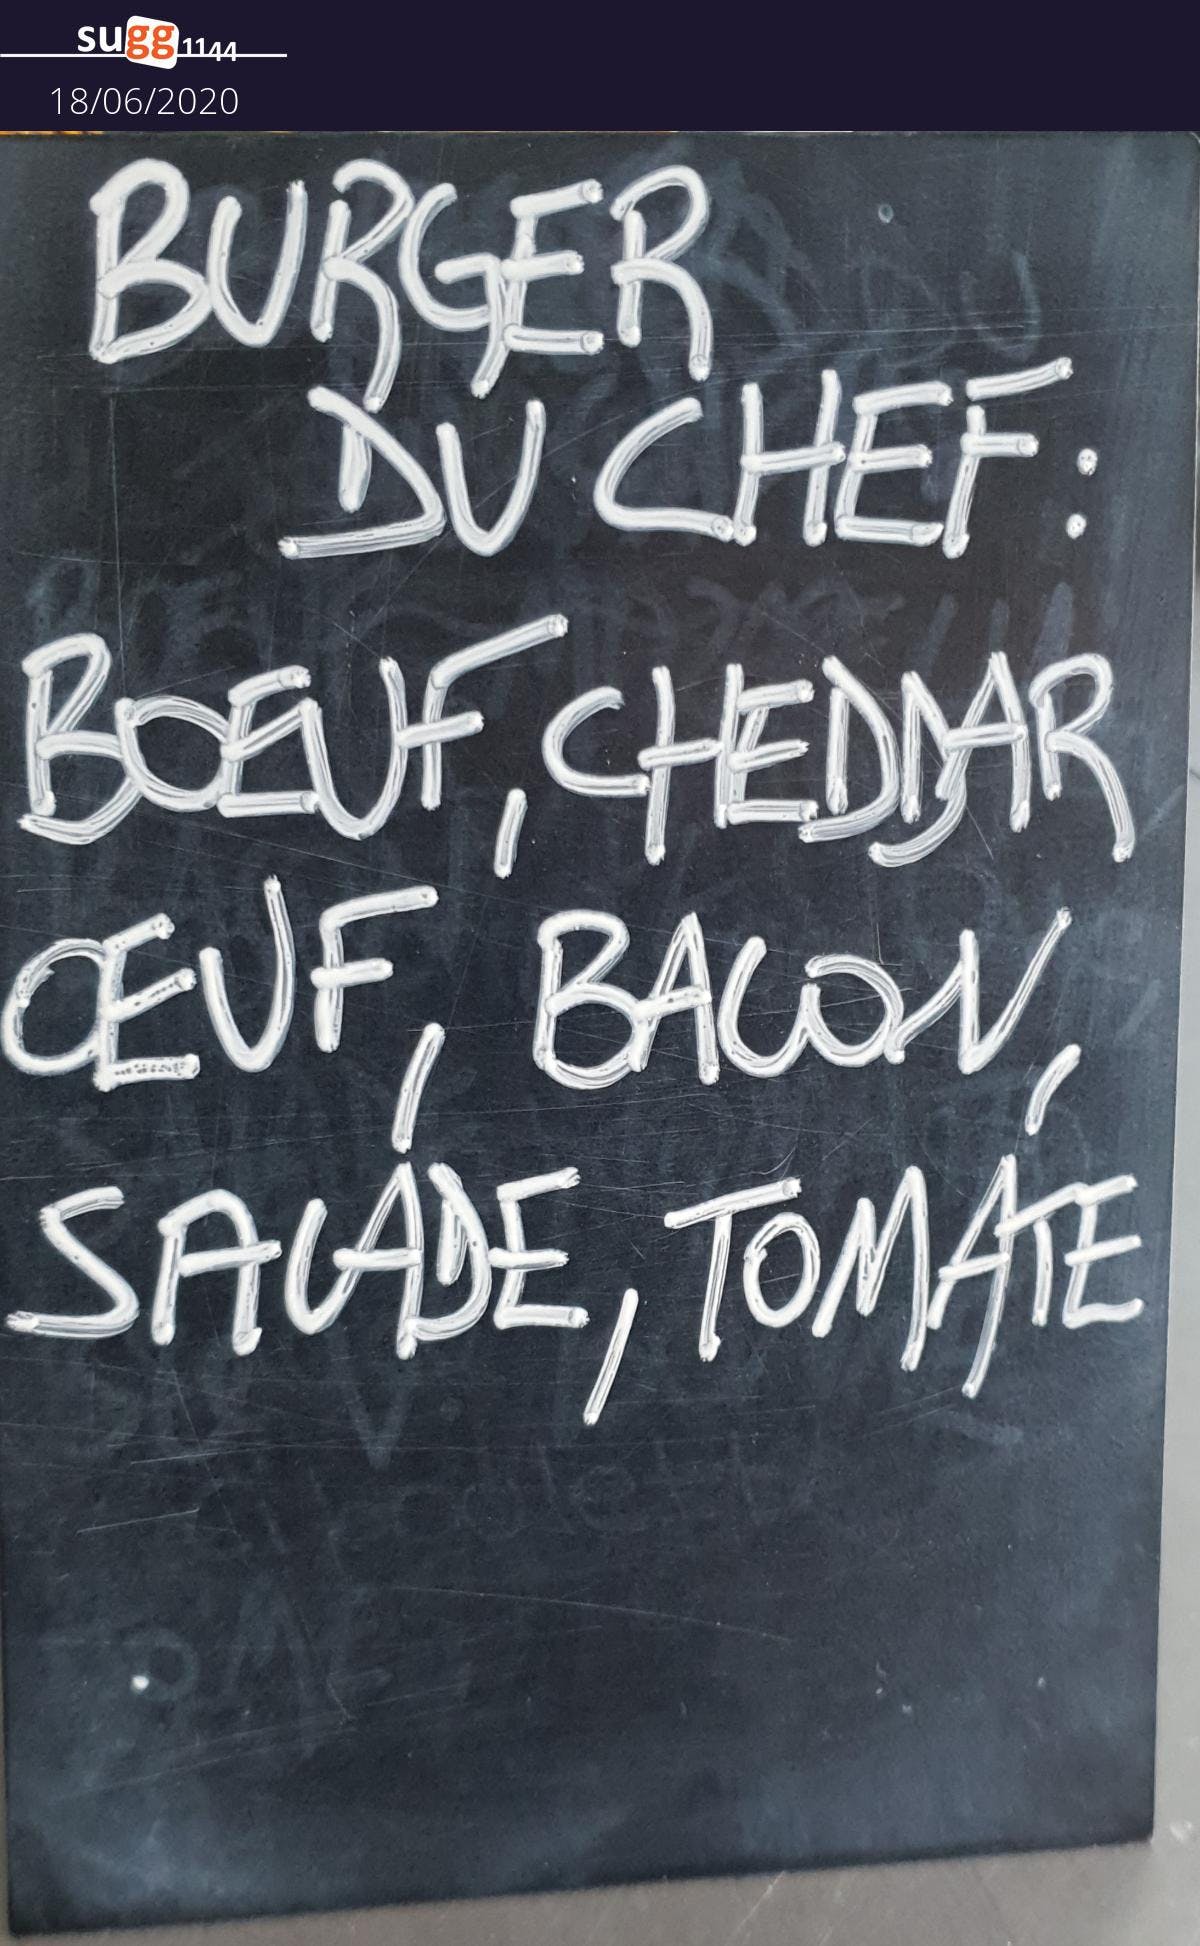 sugg1144
18/06/2020
BURGER
DU CHEF :
BŒUF, CHEDDAR
ŒUF, BACON,
SALADE, TOMATE